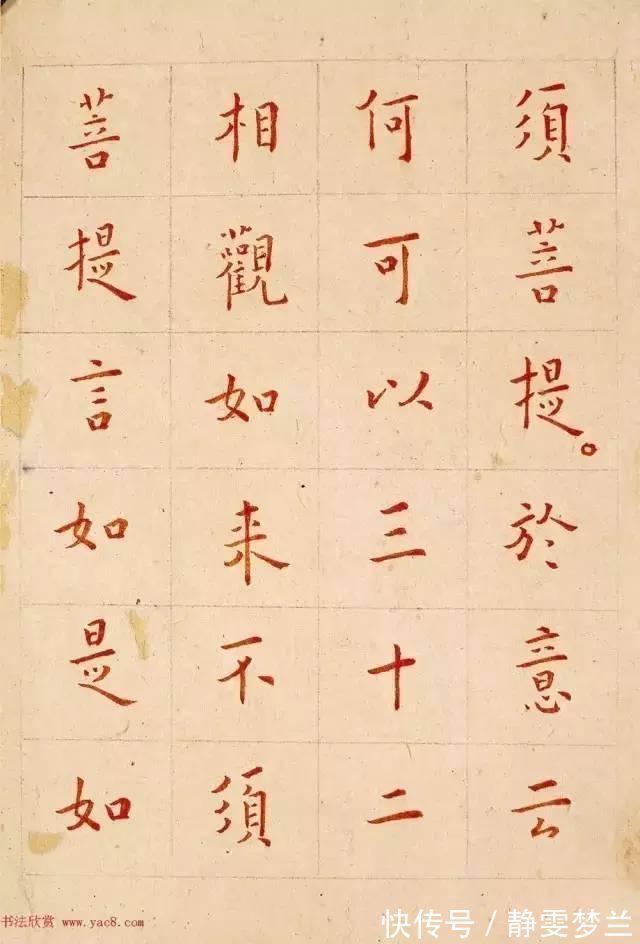 須菩提。於意云
何可以三十二
相觀如来不須
菩提言如是如
书法欣赏 www.yac8.com
快传号/静雯梦兰